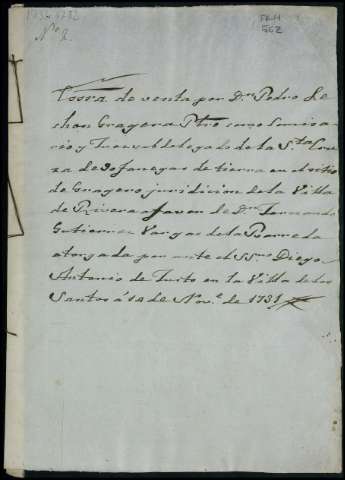 1731-1732
Nº 2.
FRM
552
Essra. de venta por Dn. Pedro Le
chon Gragera Pbro
y Juez Subdelegado de la Sta. Cruza
da de 30 fanegas de tierra en el sitio
de Gragero jurisdicion de la Villa
de Rivera á favor de Dn. Fernando
Gutierrez Vargas de la Barreda
otorgada por ante el SSno. Diego
Antonio de en la Villa de los
Santos á 14 de Nove. de 1731